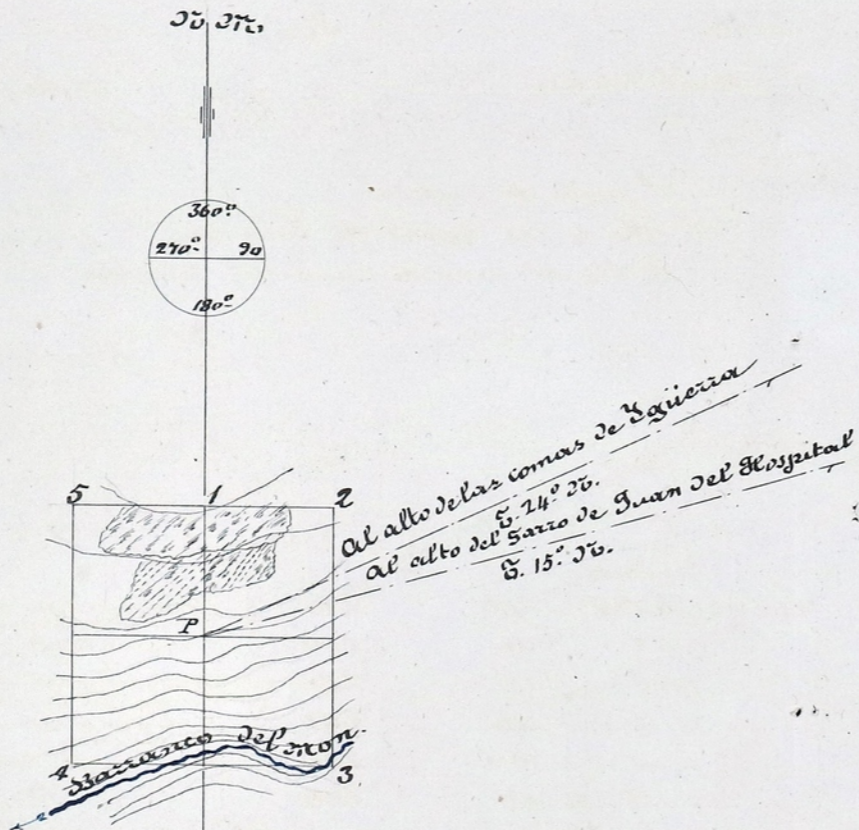 N. M.
360º
270º 90
180º
5 1 2
Al alto de las comas de Ygüerra
E. 24º N.
Al alto del Sarro de Juan del Hospital
E. 15º N.
P
Barranco del mon.
4
3